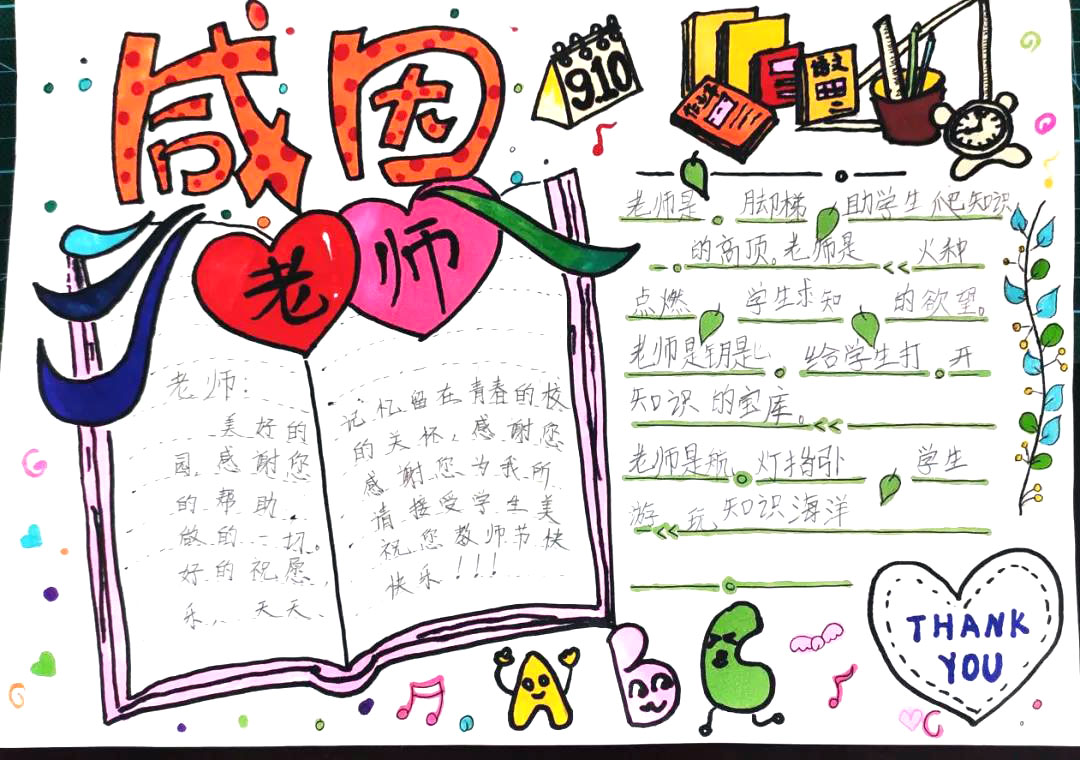 感恩
老师
9.10
语文
老师:
美好的记忆留在青春的校
园,感谢您的关怀,感谢您
的帮助 感谢您为我所
做的一切。请接受学生美
好的祝愿,祝您教师节快
乐,天天、快乐!!!
老师是 脚梯 助学生爬知识
的高顶。老师是 火种
点燃 学生求知 的欲望。
老师是钥匙 给学生打 开
知识的宝库。
老师是航 灯指引 学生
游 玩、知识海洋
A B C
THANK
YOU